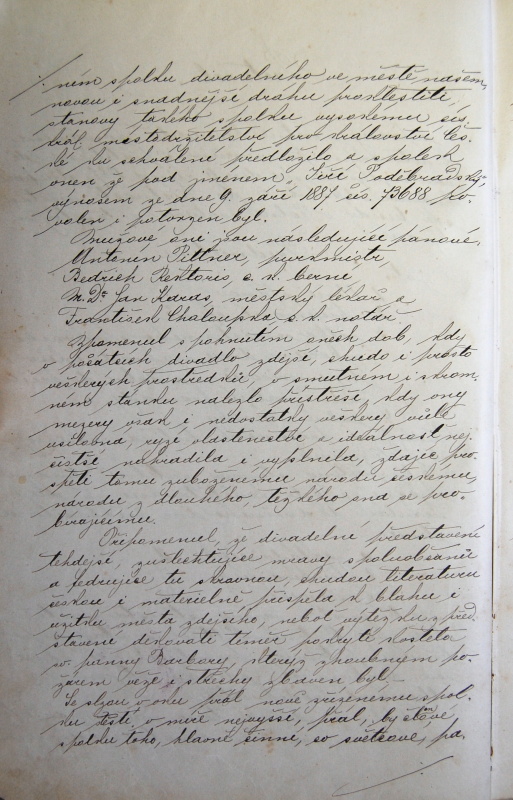 ném spolku divadelního ve městě našem,
novou i snadnější dráhu proklestěti,
stanovy takého spolku vysokému cís.
král. místodržitelství pro království Čes-
ké ku schválení předložilo a spolek
onen že pod jménem "Jiří Poděbradský",
výnosem ze dne 9. září 1887 čís. 73688 po-
volen i potvrzen byl.
Mužové oni jsou následující pánové:
Antonín Pittner, purkmistr,
Bedřich Rektoris, c. k. berní
M. Dr. Jan Karas, městský lékař a
František Chaloupka c. k. notář
Vzpomenul s pohnutím oněch dob, kdy
v počátcích divadlo zdejší, chudo i prosto
veškerých prostředků, v smutném i skrom-
ném stánku nalezlo přístřeší, kdy ony
mezery však i nedostatky veškery vůle
usilovná, ryzé vlastenectví a ideálnost nej-
čistší nahradila i vyplnila, žádajíc pro-
spěti tomu zuboženému národu českému,
národu z dlouhého, těžkého sna se pro-
bírajícímu.
Připomenul, že divadelní představení
tehdejší, zušlechťujíce mravy spoluobčanů
a sedrujíce tu skrovnou, chudou literaturu
českou i materielně přispěla k blahu i
užitku města zdejšího, neboť výtěžku z před-
stavení děkovati téměř pokrytí kostela
sv. panny Barbory, kterýž zhoubným po-
žárem věže i střechy zbaven byl.–
Se slzou v oku přál nově zřízenému spol-
ku štěstí v míře nejvyšší, přál, by členové
spolku toho, hlavně činní, co světcové, pa-